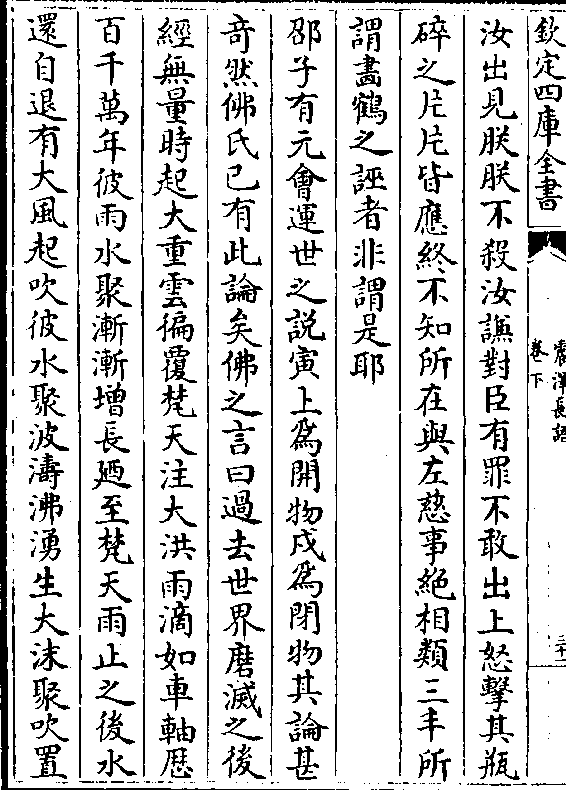 欽定四庫全書
震澤長語
卷下
汝出見朕朕不殺汝謙對臣有罪不敢出上怒擊其瓶
碎之片片皆應終不知所在與左慈事絕相類三丰所
謂畫鶴之誣者非謂是耶
邵子有元會運世之説寅上為開物戌為閉物其論甚
竒然佛氏已有此論矣佛之言曰過去世界磨滅之後
經無量時起大重雲徧覆梵天注大洪雨滴如車軸厯
百千萬年彼雨水聚漸漸增長廼至梵天雨止之後水
還自退有大風起吹彼水聚波濤沸湧生大沫聚吹置